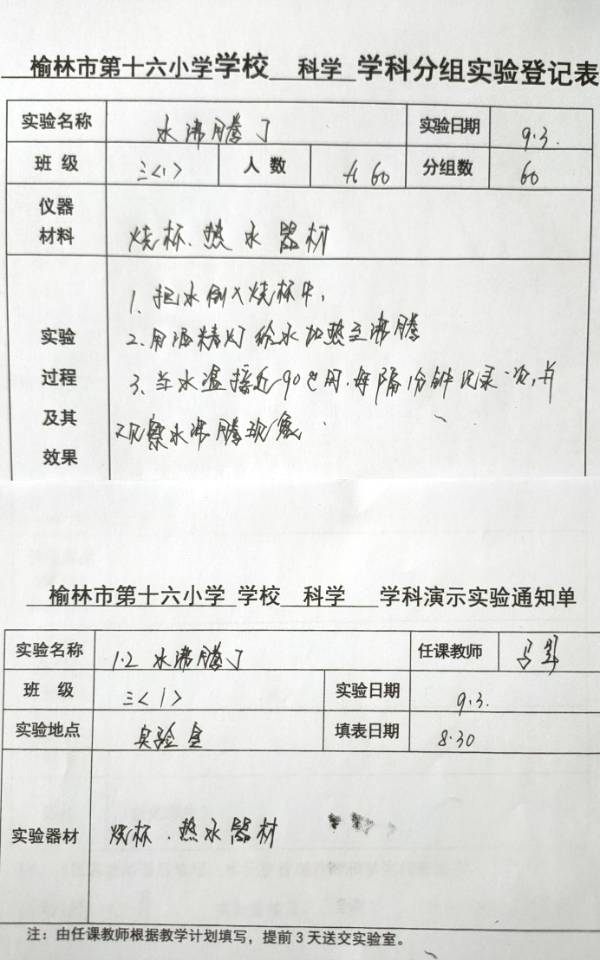 榆林市第十六小学学校 科学 学科分组实验登记表
实验名称 水沸腾了 实验日期 9.3.
班 级 三<1> 人 数 60 分组数 60
仪器
材料 烧杯、热水器材
1、把水倒入烧杯中,
实验 2、用酒精灯给水加热至沸腾
过程 3、当水温接近90℃时,每隔1分钟记录一次,并
及其 观察水沸腾现象
效果
榆林市第十六小学 学校 科学 学科演示实验通知单
实验名称 1.2 水沸腾了 任课教师
班 级 三<1> 实验日期 9.3.
实验地点 实验室 填表日期 8.30
实验器材 烧杯、热水器材
注:由任课教师根据教学计划填写,提前3天送交实验室。